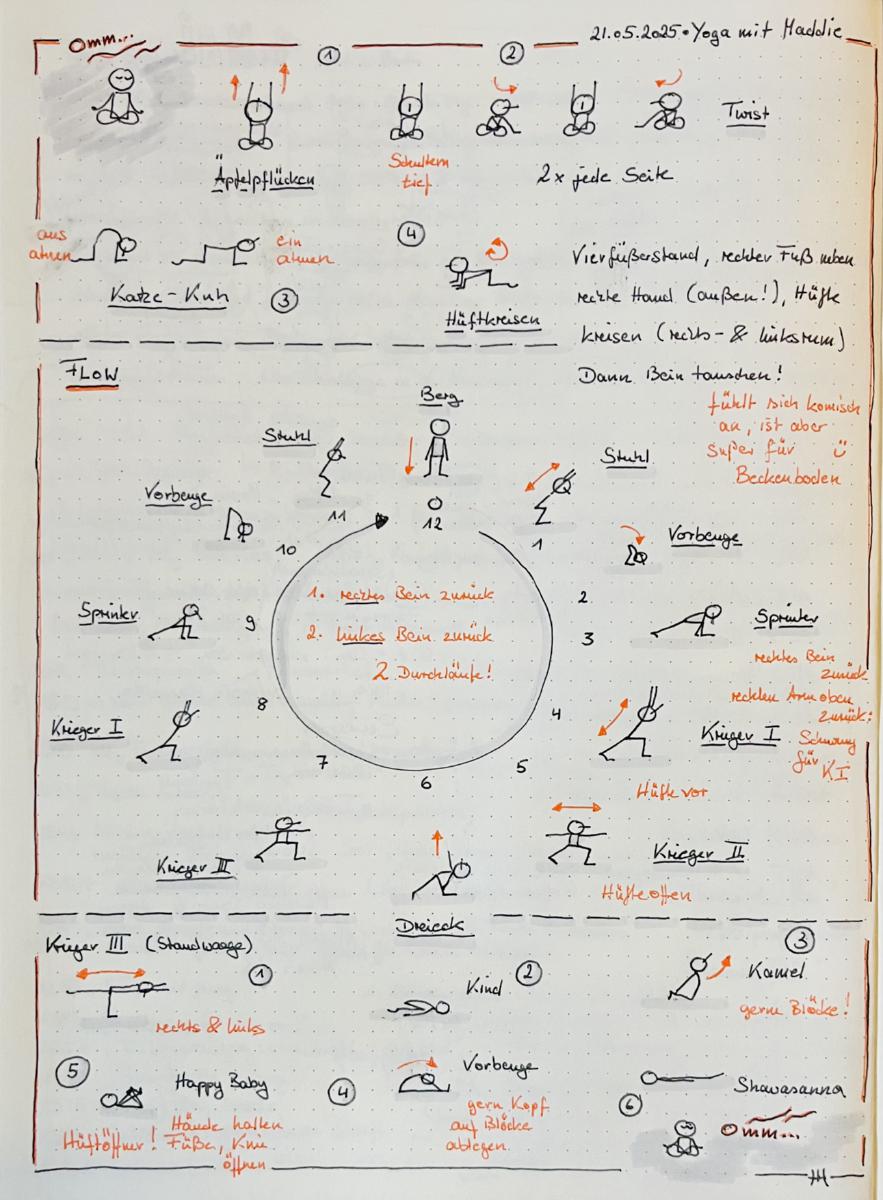 21.05.2025 • Yoga mit Maddie
Omm...
1
2
Äpfelpflücken
Schultern
tief
2x jede Seite
Twist
aus
atmen
ein
atmen
Katze-Kuh
3
4
Hüftkreisen
Vierfüßerstand, rechter Fuß neben
rechte Hand (außen!), Hüfte
kreisen (rechts- & linksrum)
Dann Bein tauschen!
fühlt sich komisch
an, ist aber
super für
Beckenboden
FLOW
Berg
12
Stuhl
1
Vorbeuge
2
Sprinter
3
rechtes Bein
zurück
rechten Arm oben
zurück:
Schwung
für
KI
4
Krieger I
Hüfte vor
5
Krieger II
Hüfte offen
6
Dreieck
7
Krieger II
8
Krieger I
9
Sprinter
10
Vorbeuge
11
Stuhl
1. rechtes Bein zurück
2. linkes Bein zurück
2 Durchläufe!
Krieger III (Standwaage)
1
rechts & links
Kind
2
3
Kamel
gerne Blöcke!
5
Happy Baby
Hüftöffner!
Hände halten
Füße, Knie
öffnen
4
Vorbeuge
gern Kopf
auf Blöcke
ablegen
6
Shawasanna
Omm...